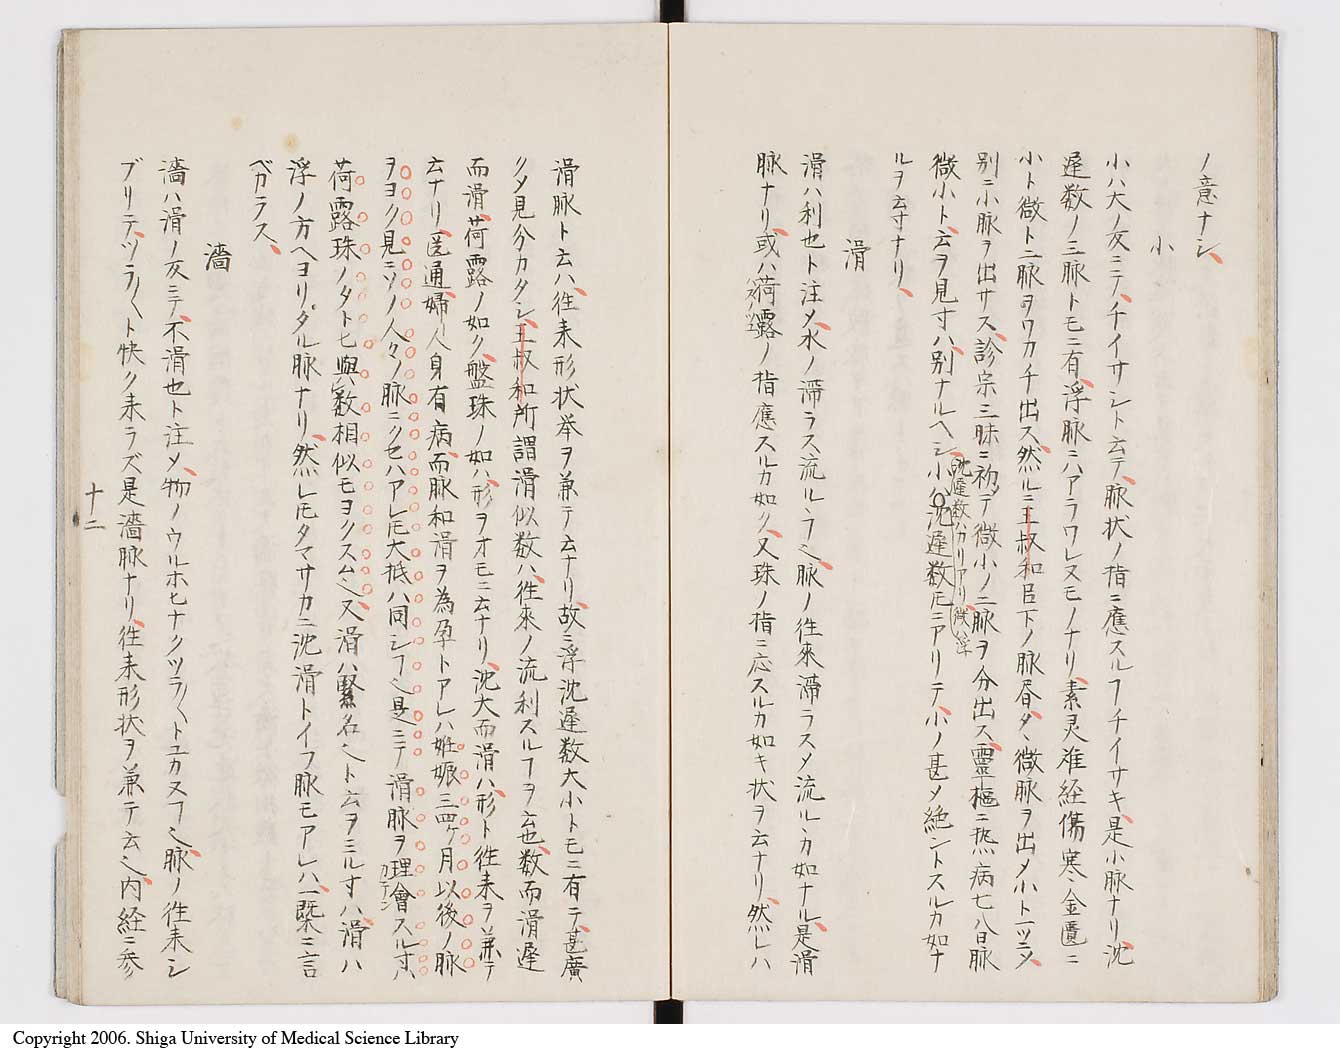 ノ意ナシ
小
小ハ大ノ反ニテチイサシト云テ脉状ノ指ニ應スルヿチイサキ是小脉ナリ沈
遅数ノ三脉トモニ有浮脉ニハアラワレヌモノナリ素灵难経傷寒金匱ニ
小ト微ト二脉ヲワカチ出ス然ルニ王叔和己下ノ脉書タヽ微脉ヲ出メ小ト一ツラメ
別ニ小脉ヲ出サス診宗三昧ニ初メテ微小ノ二脉ヲ分出ス靈樞ニ熱病七八日脉
微小ト云ヲ見寸ハ別ナルヘシ小ハ沈遅数𪜈ニアリテ小ノ甚メ絶ントスルカ如ナ
沈遅数ハカリアリ微ハ浮
ルヲ云寸ナリ
滑
滑ハ利也ト注メ水ノ滞ラス流ルヽヿ乄脉ノ往來滞ラスメ流ルカ如ナル是滑
脉ナリ或ハ荷露ノ指應スルカ如ク又珠ノ指ニ応スルカ如キ状ヲ云ナリ然レハ
滑脉ト云ハ往耒形状挙ヲ兼テ云ナリ故ニ浮沈遅数大小トモニ有テ甚廣
クメ見分カタシ王叔和所謂滑似数ハ往來ノ流利スルヿヲ云也数而滑遅
而滑荷露ノ如ク盤珠ノ如ハ形ヲオモニ云ナリ沈大而滑ハ形ト往耒ヲ兼テ
云ナリ医通婦人身有病而脉和滑ヲ為孕トアレハ妊娠三四ヶ月以後ノ脉
ヲヨク見ニソノ人々ノ脉ニクセハアレ𪜈大抵ハ同シヿ也是ニテ滑脉ヲ理會スル寸ハ
ガテン
荷露珠ノタトヒ與数相似モヨクスム也又滑ハ緊名也ト云ヲミル寸ハ滑ハ
浮ノ方ヘヨリタル脉ナリ然レ𪜈タマサカニ沈滑トイフ脉モアレハ一槩ニ言
ベカラス
濇
濇ハ滑ノ反ニテ不滑也ト注メ物ノウルホヒナクツラ〱トユカヌヿ也脉ノ往耒シ
ブリテツラ〱ト快ク耒ラズ是濇脉ナリ往耒形状ヲ兼テ云也内経ニ参
十二
Copyright 2006. Shiga University of Medical Science Library